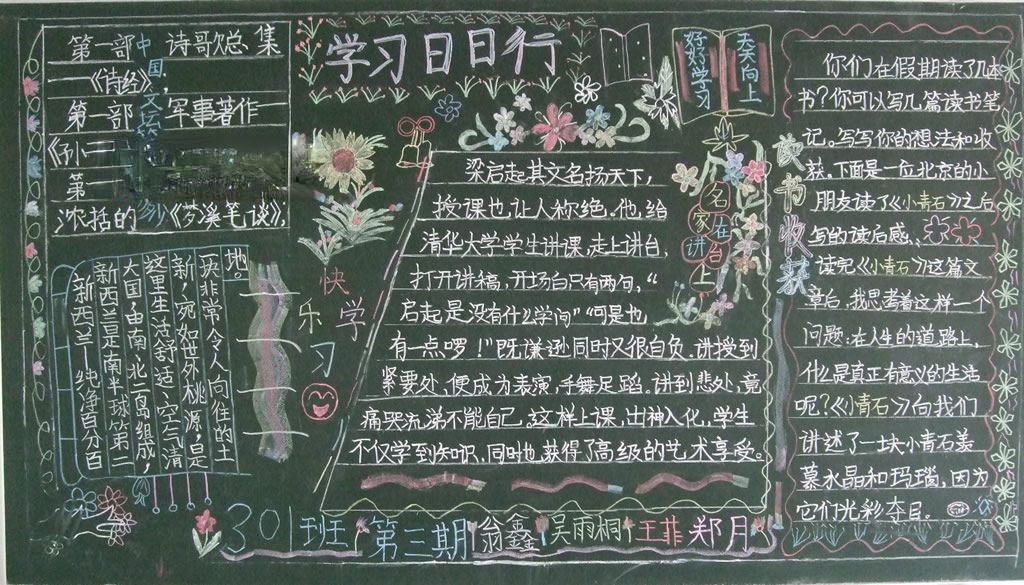 学习日日行
好好学习
天天向上
第一部 诗歌总集
—《诗经》
第一部 军事著作—
《孙
第一
沈括的《梦溪笔谈》,
中国
新西兰—纯净百分百
新西兰是南半球第二
大国,由南、北二岛组成,
这里生活舒适、空气清
新,宛如世外桃源,是
一块非常令人向往的土
地
快乐学习
名家在讲台上
梁启超其文名扬天下,
授课也让人称绝。他给
清华大学学生讲课,走上讲台,
打开讲稿,开场白只有两句,“
启超是没有什么学问”“可是也
有一点啰!”既谦逊同时又很自负。讲授到
紧要处、便成为表演,手舞足蹈。讲到悲处,竟
痛哭流涕不能自已。这样上课,出神入化,学生
不仅学到知识、同时也获得了高级的艺术享受。
读书收获
你们在假期读了几本
书?你可以写几篇读书笔
记。写写你的想法和收
获。下面是一位北京的小
朋友读了《小青石》之后
写的读后感、
读完《小青石》这篇文
章后,我思考着这样一个
问题:在人生的道路上,
什么是真正有意义的生活
呢?《小青石》向我们
讲述了一块小青石羡
慕水晶和玛瑙,因为
它们光彩夺目。
301班 第三期 翁鑫 吴雨桐 王菲 郑月